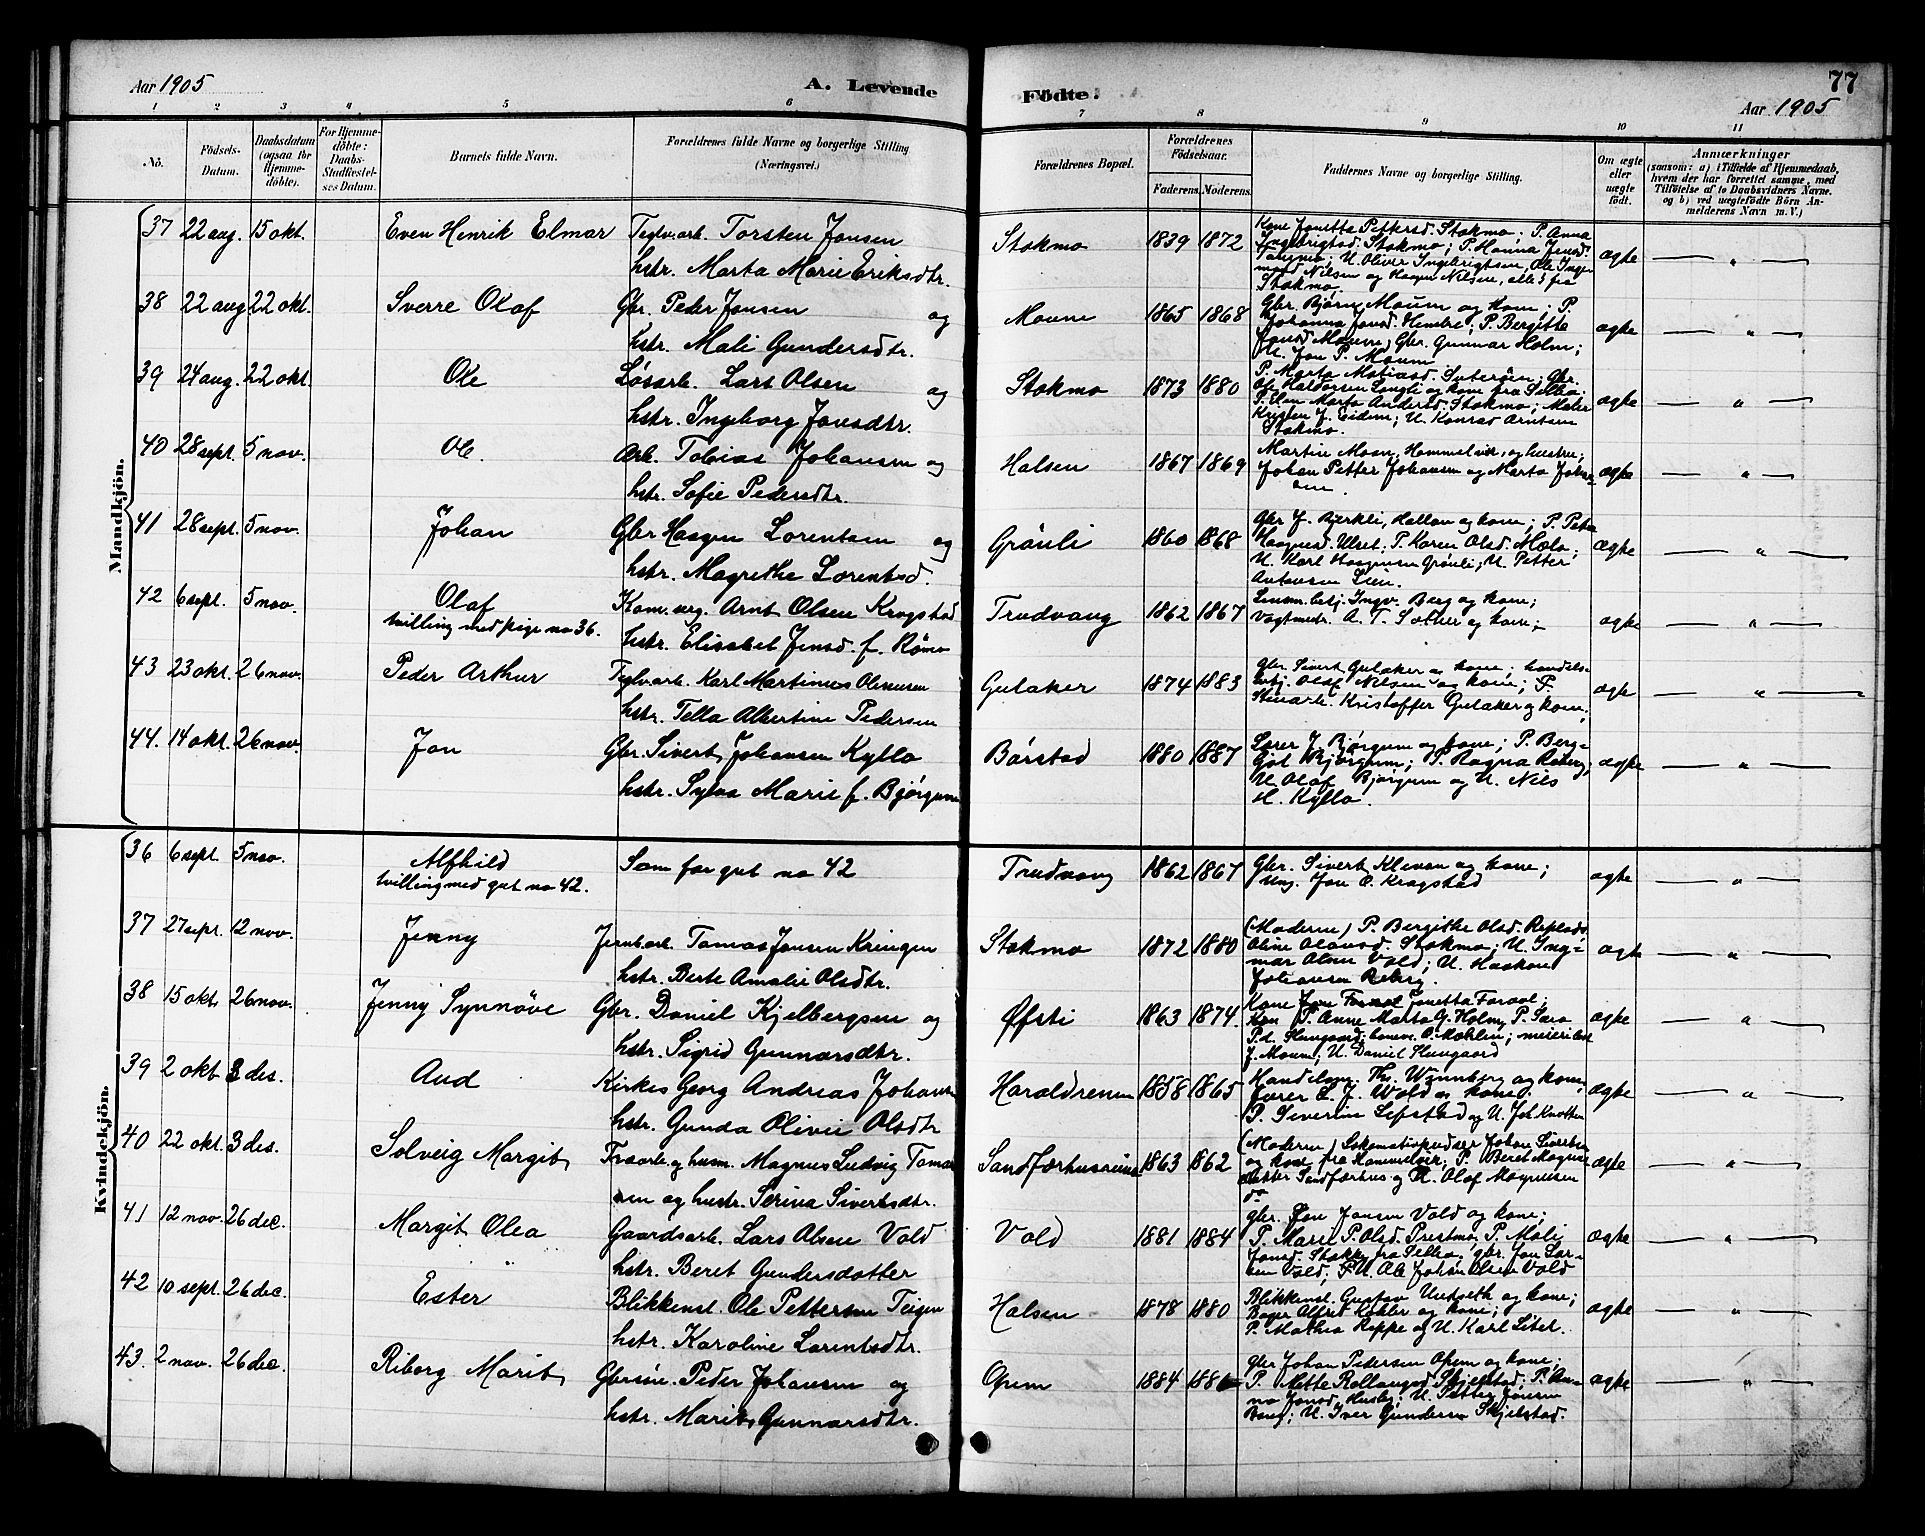 Aar 1905
A. Levende Födte.
77
Aar 1905
1 2 3 4 5 6 7 8 9 10 11
No. Födsels-Datum. Daabsdatum (ogsaa for Hjemmedöbte). For Hjemmedöbte: Daabs-Stadfæstelses Datum. Barnets fulde Navn. Forældrenes fulde Navne og borgerlige Stilling (Næringsvei.) Forældrenes Bopæl. Forældrenes Födselsaar. Faderens. Moderens. Faddernes Navne og borgerlige Stilling. Om ægte eller uægte födt. Anmærkninger (saasom: a) i Tilfælde af Hjemmedaab, hvem der har forrettet samme, med Tilföielse af to Daabsvidners Navne. og b) ved uægtefödte Börn Anmelderens Navn m. V.)
Mandkjön.
37 22 aug. 15 okt. Even Henrik Elmar Teglv.arb. Torsten Jonsen Stokmo 1839 1872 Kone Jonetta Pettersd. Stokmo; P. Anna
hstr. Marta Marie Eriksdtr. Ingebrigtsd. Stokmo; P. Hanna Jonsd.
U. Oliver Ingebrigtsen, Ole Inge-
mond Nilsen og Haagen Nilsen, alle 3 fra ægte — " —
Stokmo.
38 22 aug 22 okt. Sverre Olaf Gbr. Peder Jonsen og Moune 1865 1868 Gbr. Bjørn Moum og kone; P.
hstr. Mali Gundersdtr. Johanna Jonsd. Hembre; P. Bergitte
Jonsd. Moune; Gbr. Gunnar Holm; ægte — " —
U. Jon P. Moum
39 24 aug. 22 okt. Ole Løsarb. Lars Olsen og Stokmo 1873 1880 P. Marta Matiasd. Gbr.
hstr. Ingeborg Jonsdtr. Ole Haldorsen Langli og kone fra Selbu;
P. Elen Marta Andersd. Stokmo; Maler ægte — " —
Kristen J. Eidem; U. Konrad Arntsen
Stokmo.
40 28 sept. 5 nov. Ole. Arb. Tobias Johansen og Halsen 1867 1869 Martin Moan, Hommelvik, og hustru;
hstr. Sofie Pedersdtr. Johan Petter Johansen og Marta ægte — " —
41 28 sept. 5 nov. Johan Gbr Haagen Lorentsen og Grönli 1860 1868 Gbr J. Bjerkli, Hallan og kone; P. Petra
hstr. Magrethe Lorentsd. Haagensd. Ulset; P. Karen Olsd. Mæla;
U. Karl Haagensen Grönli; U. Petter ægte — " —
Antonsen Lien.
42 6 sept. 5 nov. Olaf Kom. Arnt Olsen Krogstad Trudvang 1862 1867 Lensm.betj. Ingv. Berg og kone;
tvilling med pige no 36. hstr. Elisabet Jensd. f. Rømo Vagtmstr. A. T. og kone; ægte — " —
43 23 okt. 26 nov. Peder Arthur Teglv.arb. Karl Martinus Olausen Gulaker 1874 1883 Gbr. Sivert Gulaker og kone; handels-
hstr. Tella Albertine Pedersen betj. Olaf Nilsen og kone; P.
Kristoffer Gulaker og kone; ægte — " —
44. 14 okt. 26 nov. Jon Gbr. Sivert Johansen Kyllo Børstad 1880 1887 Lærer J. Bjørgum og kone; P. Berg-
hstr. Sylva Marie f. Bjørgum ljot Bjørgum; P. Ragna Reberg;
U. Olaf Bjørgum og U. Nils ægte — " —
H. Kyllo.
Kvindekjön.
36 6 sept. 5 nov. Alfhild Som for gut no 42 Trudvang 1862 1867 Gbr. Sivert Kleven og kone;
tvilling med gut no 42. Ung. Jon O. Krogstad ægte — " —
37 27 sept. 12 nov. Jenny Jernb.arb. Tomas Jonsen Kringen Stokmo 1872 1880 (Moderen) P. Bergithe Olsd.
hstr. Berte Amalie Olsdtr. Oline Olausd. Stokmo; U. Ing-
mar Olsen Vold; U. Haakon ægte — " —
Johansen Reberg.
38 15 okt. 26 nov. Jenny Synnöve Gbr. Daniel Kjelbergsen og Øfsti 1863 1874. Kone Jonetta Foraal;
hstr. Sigrid Gunnarsdtr. P. Anne Marta G. Holm; P. Sara
P.d. Slungaard; O. Mæhlin; ægte — " —
J. Moum; U. Daniel Slungaard
39 2 okt 3 des. Aud Kirkes Georg Andreas Johansen Haraldreina 1858 1865 Handelsm. Ths. Wennberg og kone;
hstr. Gunda Olivie Olsdtr Lærer L. J. Wold og kone; ægte — " —
P. Siverine og U. Joh Knotten
40 22 okt. 3 des. Solveig Margit og husm. Magnus Ludvig Tomas Sandfærhus 1863 1862 (Moderen) Lokomativpudser Johan Sivertsen
sen og hustr. Serina Sivertsdtr. og kone fra Hommelvik; P. Beret Magnus-
datter Sandfærhus og U. Olaf Magnussen ægte — " —
do
41 12 nov. 26 dec. Margit Olea Gaardsarb. Lars Olsen Vold Vold 1881 1884 gbr. Jon Jonsen Vold og kone;
hstr. Beret Gundersdotter P. Marie P. Olsd. Prestmo, P. Mali
Jonsd. Stokke fra Selbu, gbr. Jon Lar- ægte — " —
sen Vold; U. Ole Johan Olsen Vold
42 10 sept. 26 dec. Ester Blikkensl. Ole Pettersen Teigen Halsen 1878 1880 Blikkensl. Gustav Undseth og kone;
hstr. Karoline Lorentsdtr. Bager Alfred Køhler og kone; ægte — " —
P. Mathea Reppe og U. Karl
43. 2 nov. 26 dec Riborg Marit Gbrsön. Peder Johansen og Opem 1884 188 gbr Johan Pedersen Opem og kone;
hstr. Marit Gunnarsdtr. P. Mette Rollaugsd. Skjelstad; P. An-
na Jonsd. Husby; U. Petter Jonsen ægte — " —
U. Iver Gundersen Skjelstad.